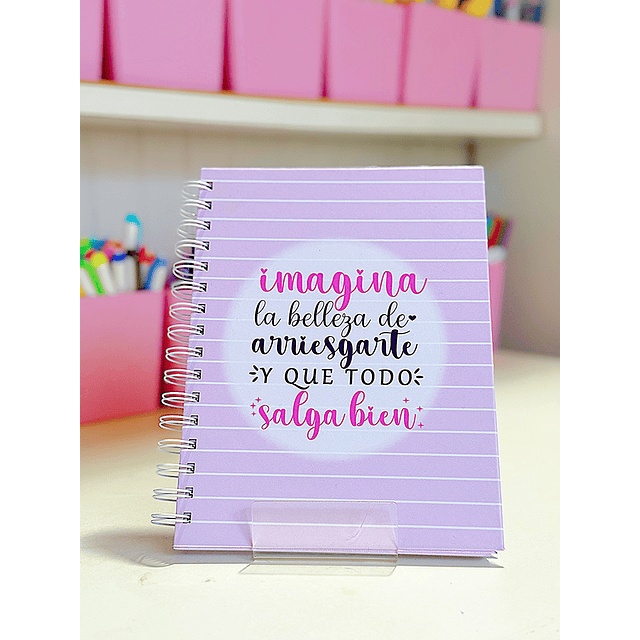 imagina
la belleza de
arriesgarte
Y QUE TODO
salga bien